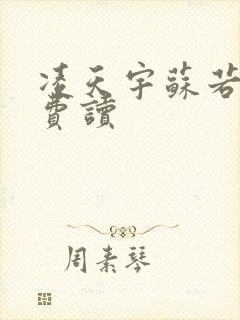 凌天宇蘇若
費讀
周素琴